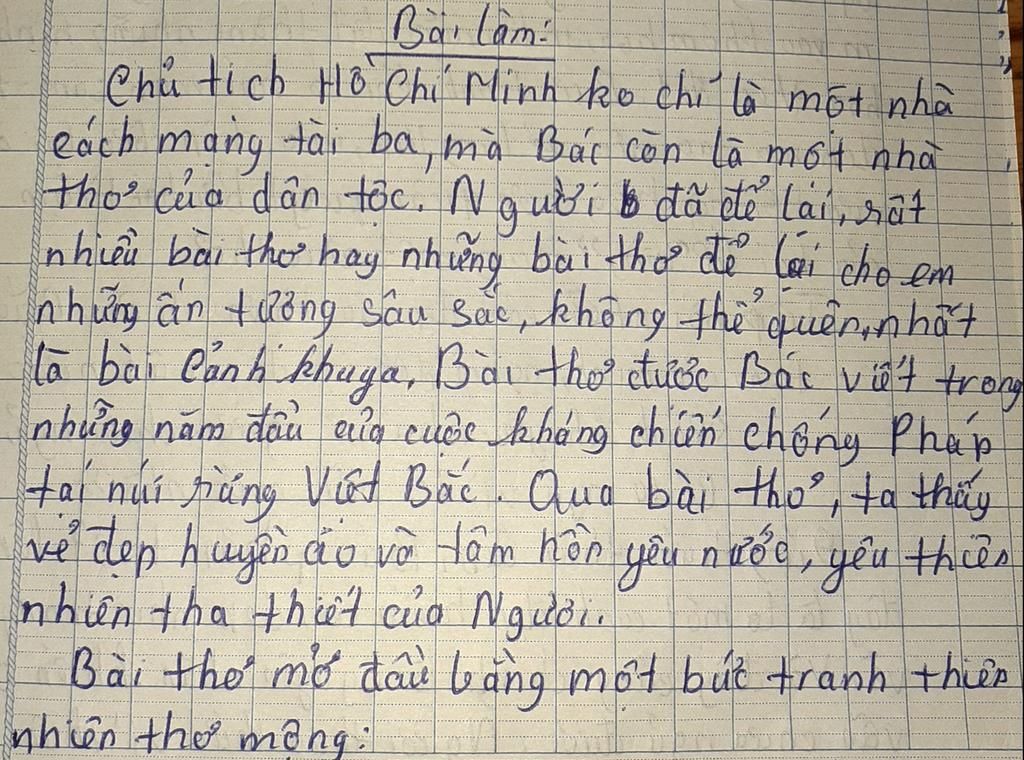 Bài làm:
Chủ tịch Hồ Chí Minh ko chỉ là một nhà
cách mạng tài ba, mà Bác còn là một nhà
thơ của dân tộc. Người đã để lại, rất
nhiều bài thơ hay những bài thơ để lại cho em
những ấn tượng sâu sắc, không thể quên, nhất
là bài Cảnh khuya, Bài thơ được Bác viết trong
những năm đầu của cuộc kháng chiến chống Pháp
tại núi rừng Việt Bắc. Qua bài thơ, ta thấy
vẻ đẹp huyền ảo và tâm hồn yêu nước, yêu thiên
nhiên tha thiết của Người.
Bài thơ mở đầu bằng một bức tranh thiên
nhiên thơ mộng: